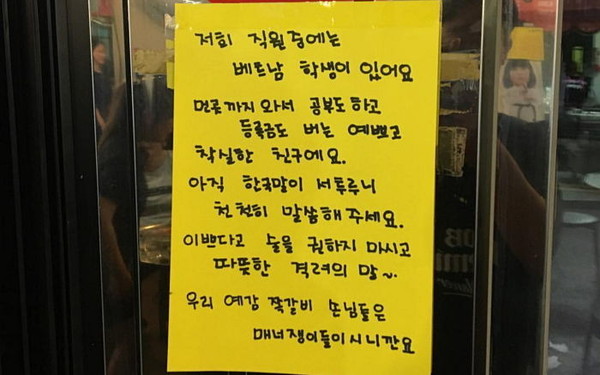 저희 직원중에는
베트남 학생이 있어요
먼곳까지 와서 공부도하고
등록금도 버는 예쁘고
착실한 친구에요.
아직 한국말이 서투루니
천천히 말씀해주세요.
이쁘다고 술을 권하지 마시고
따뜻한 격려의 말~
우리 예감 쪽갈비 손님들은
매너쟁이들이시니깐요